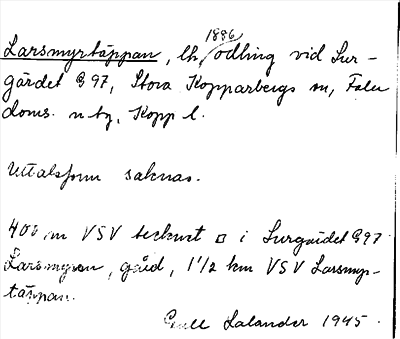 Larsmyrtäppan, lh, 1886 odling vid Sur-
gärdet G 97, Stora Kopparbergs sn, Falu
doms. n by, Kopp l.
Uttalsform saknas.
400 m VSV tecknet □ i Surgärdet G 97
Larsmyran, gård, 1 1/2 km VSV Larsmyr-
täppan.
Lalander 1945.